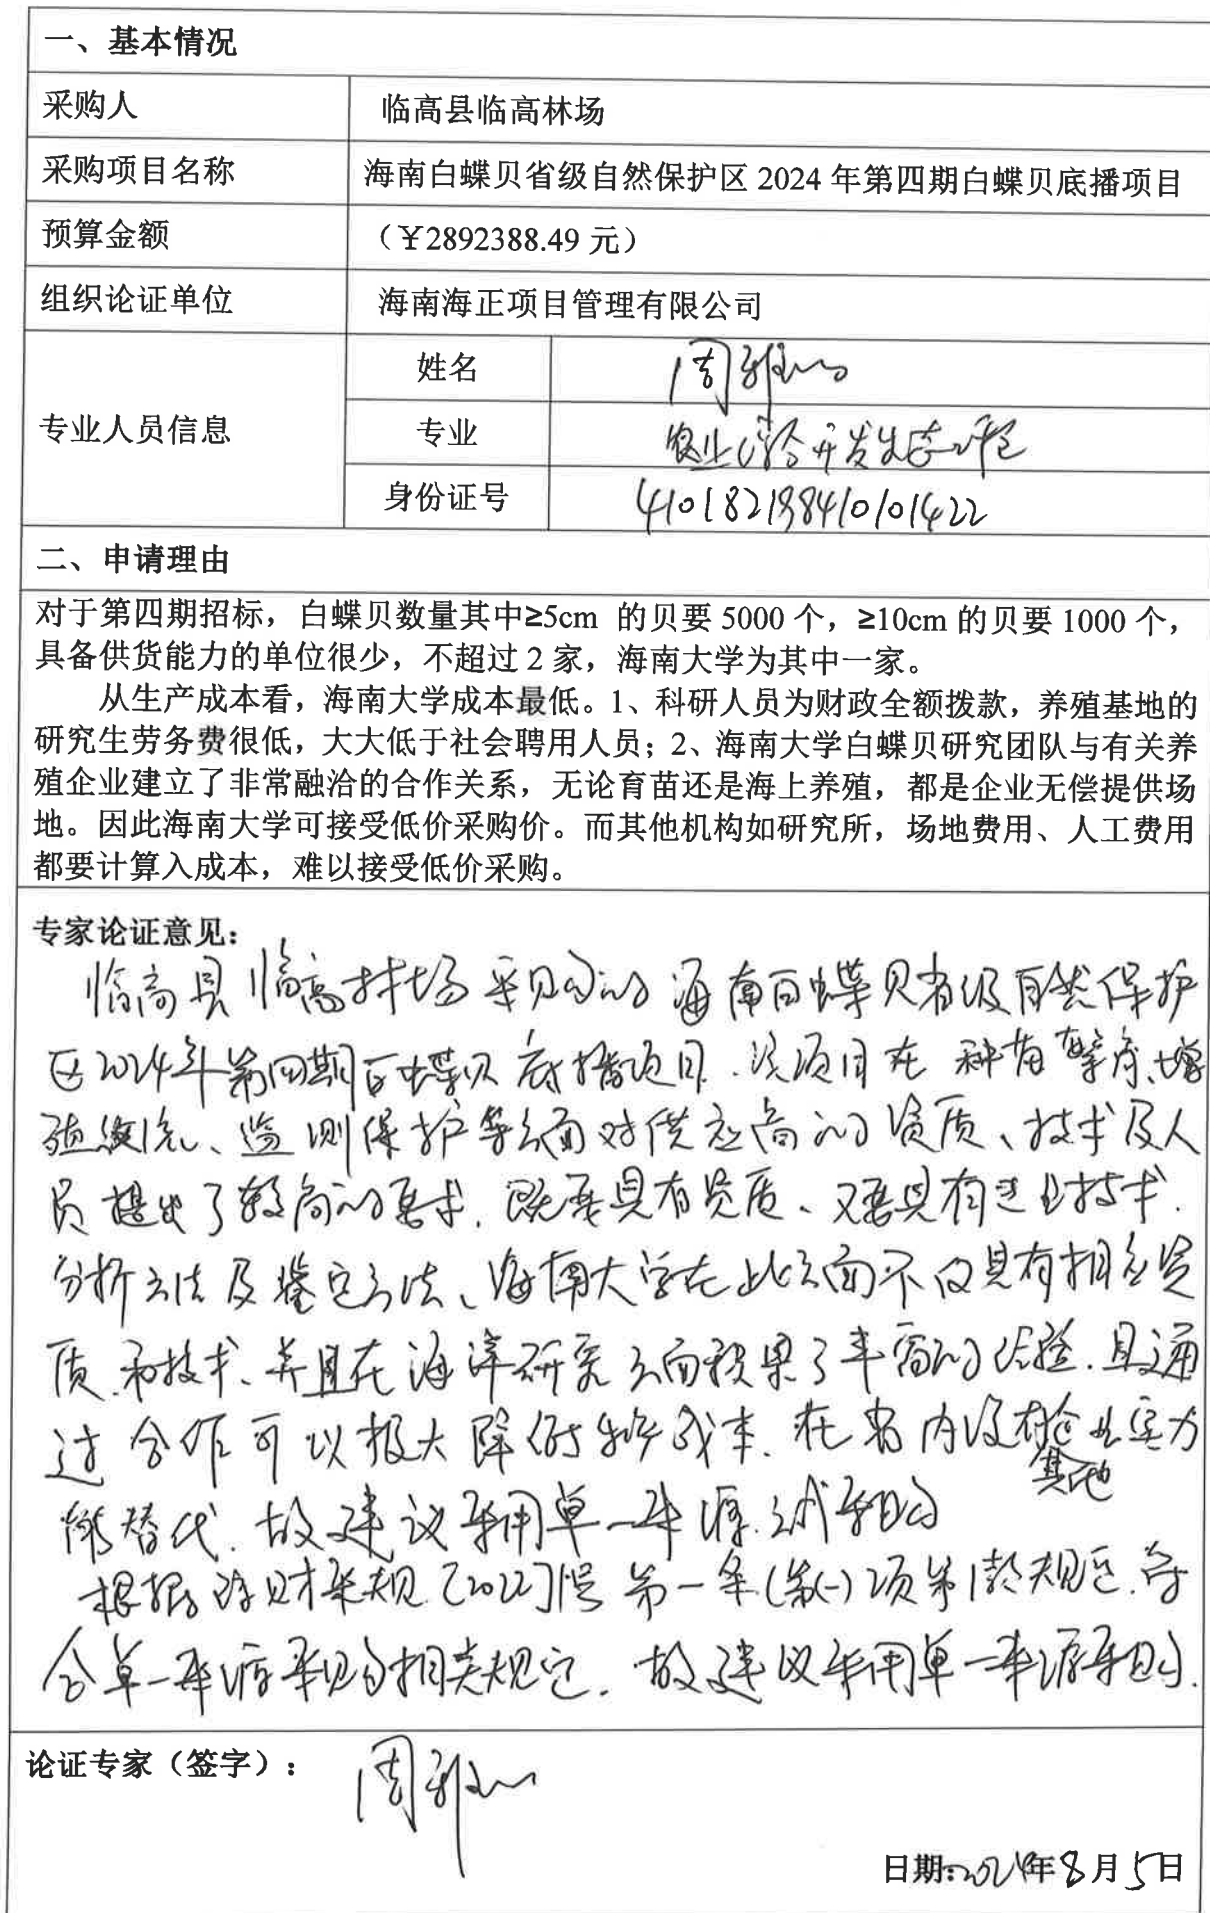 一、基本情况
采购人 临高县临高林场
采购项目名称 海南白蝶贝省级自然保护区 2024 年第四期白蝶贝底播项目
预算金额 （￥2892388.49 元）
组织论证单位 海南海正项目管理有限公司
专业人员信息
姓名 周雅
专业 农业综合开发生态
身份证号 410182198410101422
二、申请理由
对于第四期招标，白蝶贝数量其中≥5cm 的贝要 5000 个，≥10cm 的贝要 1000 个，
具备供货能力的单位很少，不超过 2 家，海南大学为其中一家。
从生产成本看，海南大学成本最低。1、科研人员为财政全额拨款，养殖基地的
研究生劳务费很低，大大低于社会聘用人员；2、海南大学白蝶贝研究团队与有关养
殖企业建立了非常融洽的合作关系，无论育苗还是海上养殖，都是企业无偿提供场
地。因此海南大学可接受低价采购价。而其他机构如研究所，场地费用、人工费用
都要计算入成本，难以接受低价采购。
专家论证意见：
临高县临高林场采购的海南白蝶贝省级自然保护
区2024年第四期白蝶贝底播项目.该项目在种苗繁育、增
殖、监测保护等方面对供应商的资质、技术及人
员提出了较高的要求.既要具有资质、又要具有专业技术.
分析方法及鉴定方法、海南大学在此方面不仅具有相应资
质.和技术、并且在海洋研究方面积累了丰富的经验.且通
过合作可以极大降低成本.在省内没有企业实力
其他
能替代.故建议采用单一来源方式采购
根据 财采规[2022]1号第一条(第(一)项第1款规定.符
合单一来源采购相关规定.故建议采用单一来源采购.
论证专家（签字）： 周雅
日期:2024年8月5日